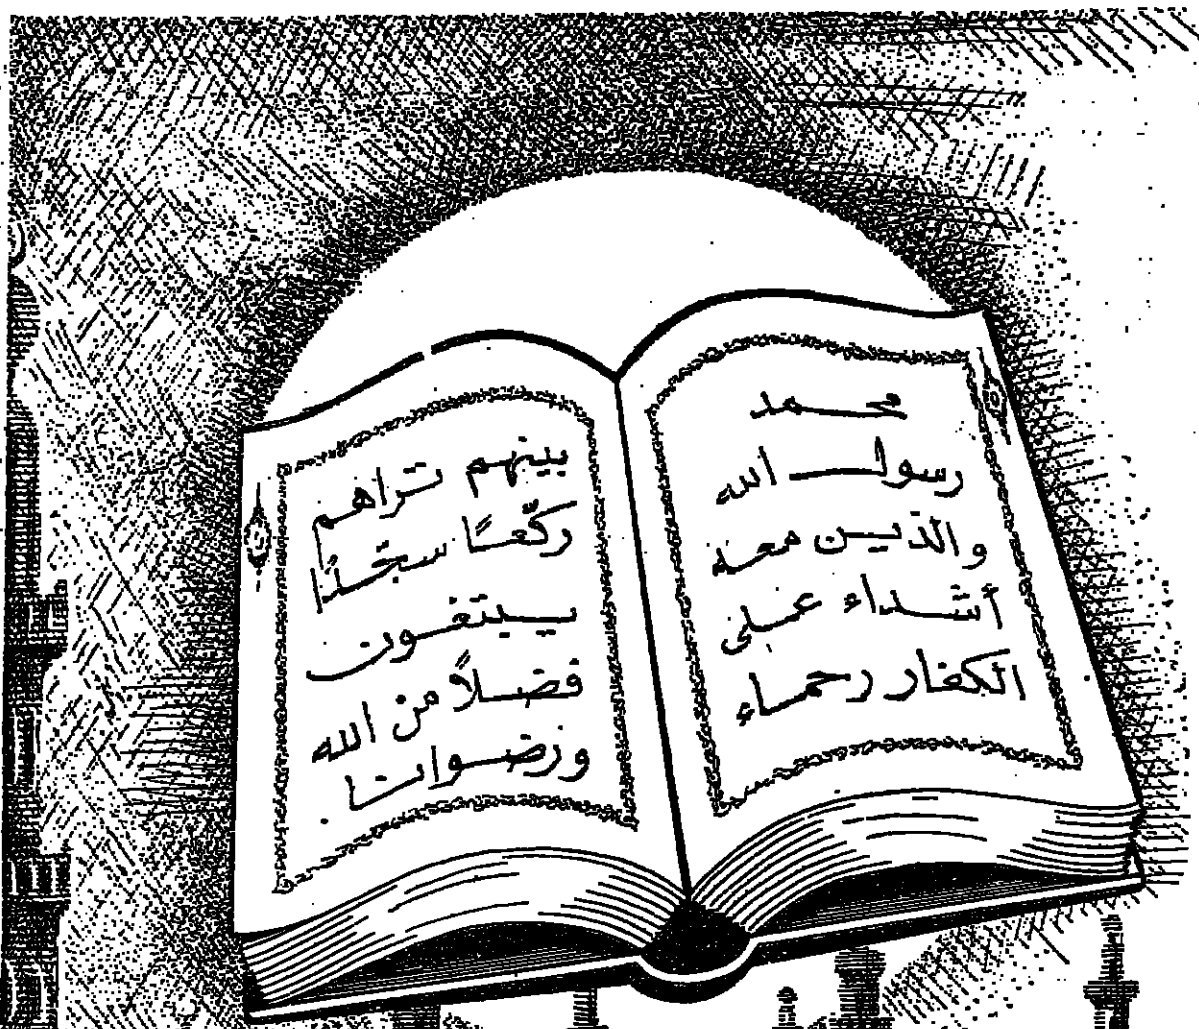 محمد
رسول الله
والذين معه
أشداء على
الكفار رحماء
بينهم تراهم
ركّعًا سجّدًا
يبتغون
فضلاً من الله
ورضوانا